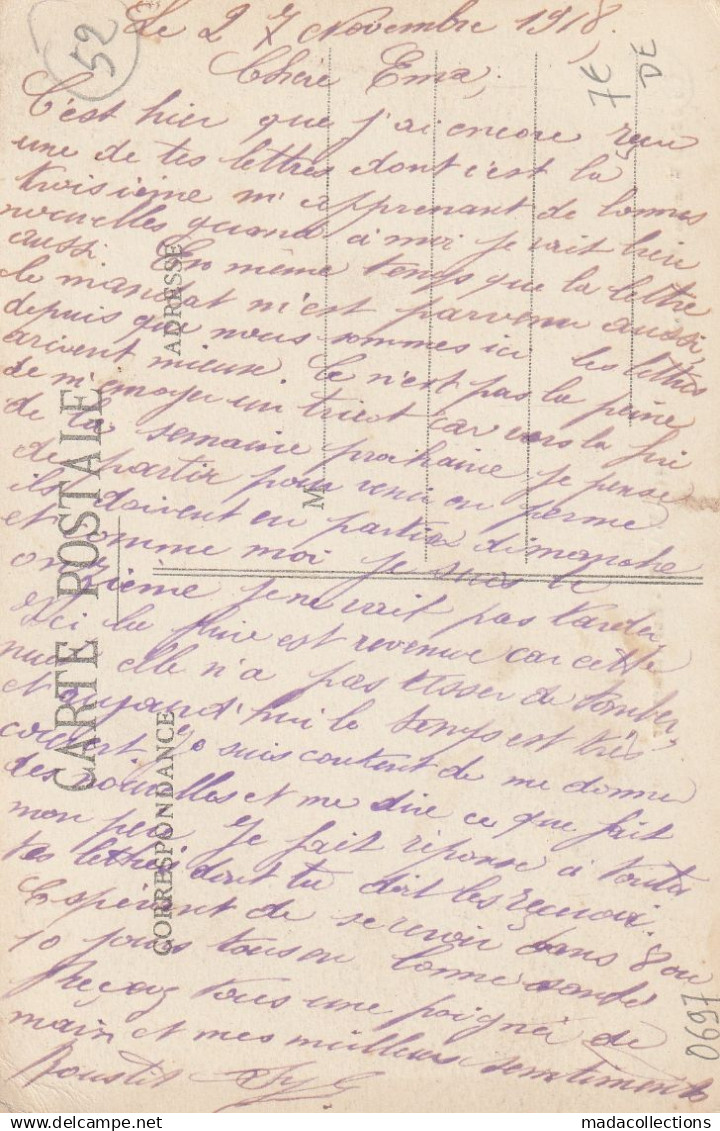 Le 27 Novembre 1918
Chère Ema,
C'est hier que j'ai encore reçu
une de tes lettres dont c'est la
troisième m'apprenant de bonnes
nouvelles quand à moi je vait bien
aussi. En même temps que la lettre
le mandat m'est parvenu aussi,
depuis que nous sommes ici les lettres
arivent mieuse. Ce n'est pas la peine
de m'envoyer un tricot car vers la fin
de la semaine prochaine je pense
de partir pour venir en perme
ils doivent en partir dimanche
et comme moi je suis le
onzième je ne vait pas tarder
Ici la pluie est revenue car cette
nuit elle n'a pas cesser de tomber
et aujourd'hui le temps est très
couvert. Je suis content de me donner
des nouvelles et me dire ce que fait
mon père. Je fait réponse à toutes
tes lettres dont tu doit les recevoir.
Espérant de se revoir dans 8 ou
10 jours tous en bonne santé
Recevez tous une poignée de
main et mes meilleurs sentiments
52
7€
DE
CARTE POSTALE
ADRESSE
CORRESPONDANCE
M
7690
madacollections